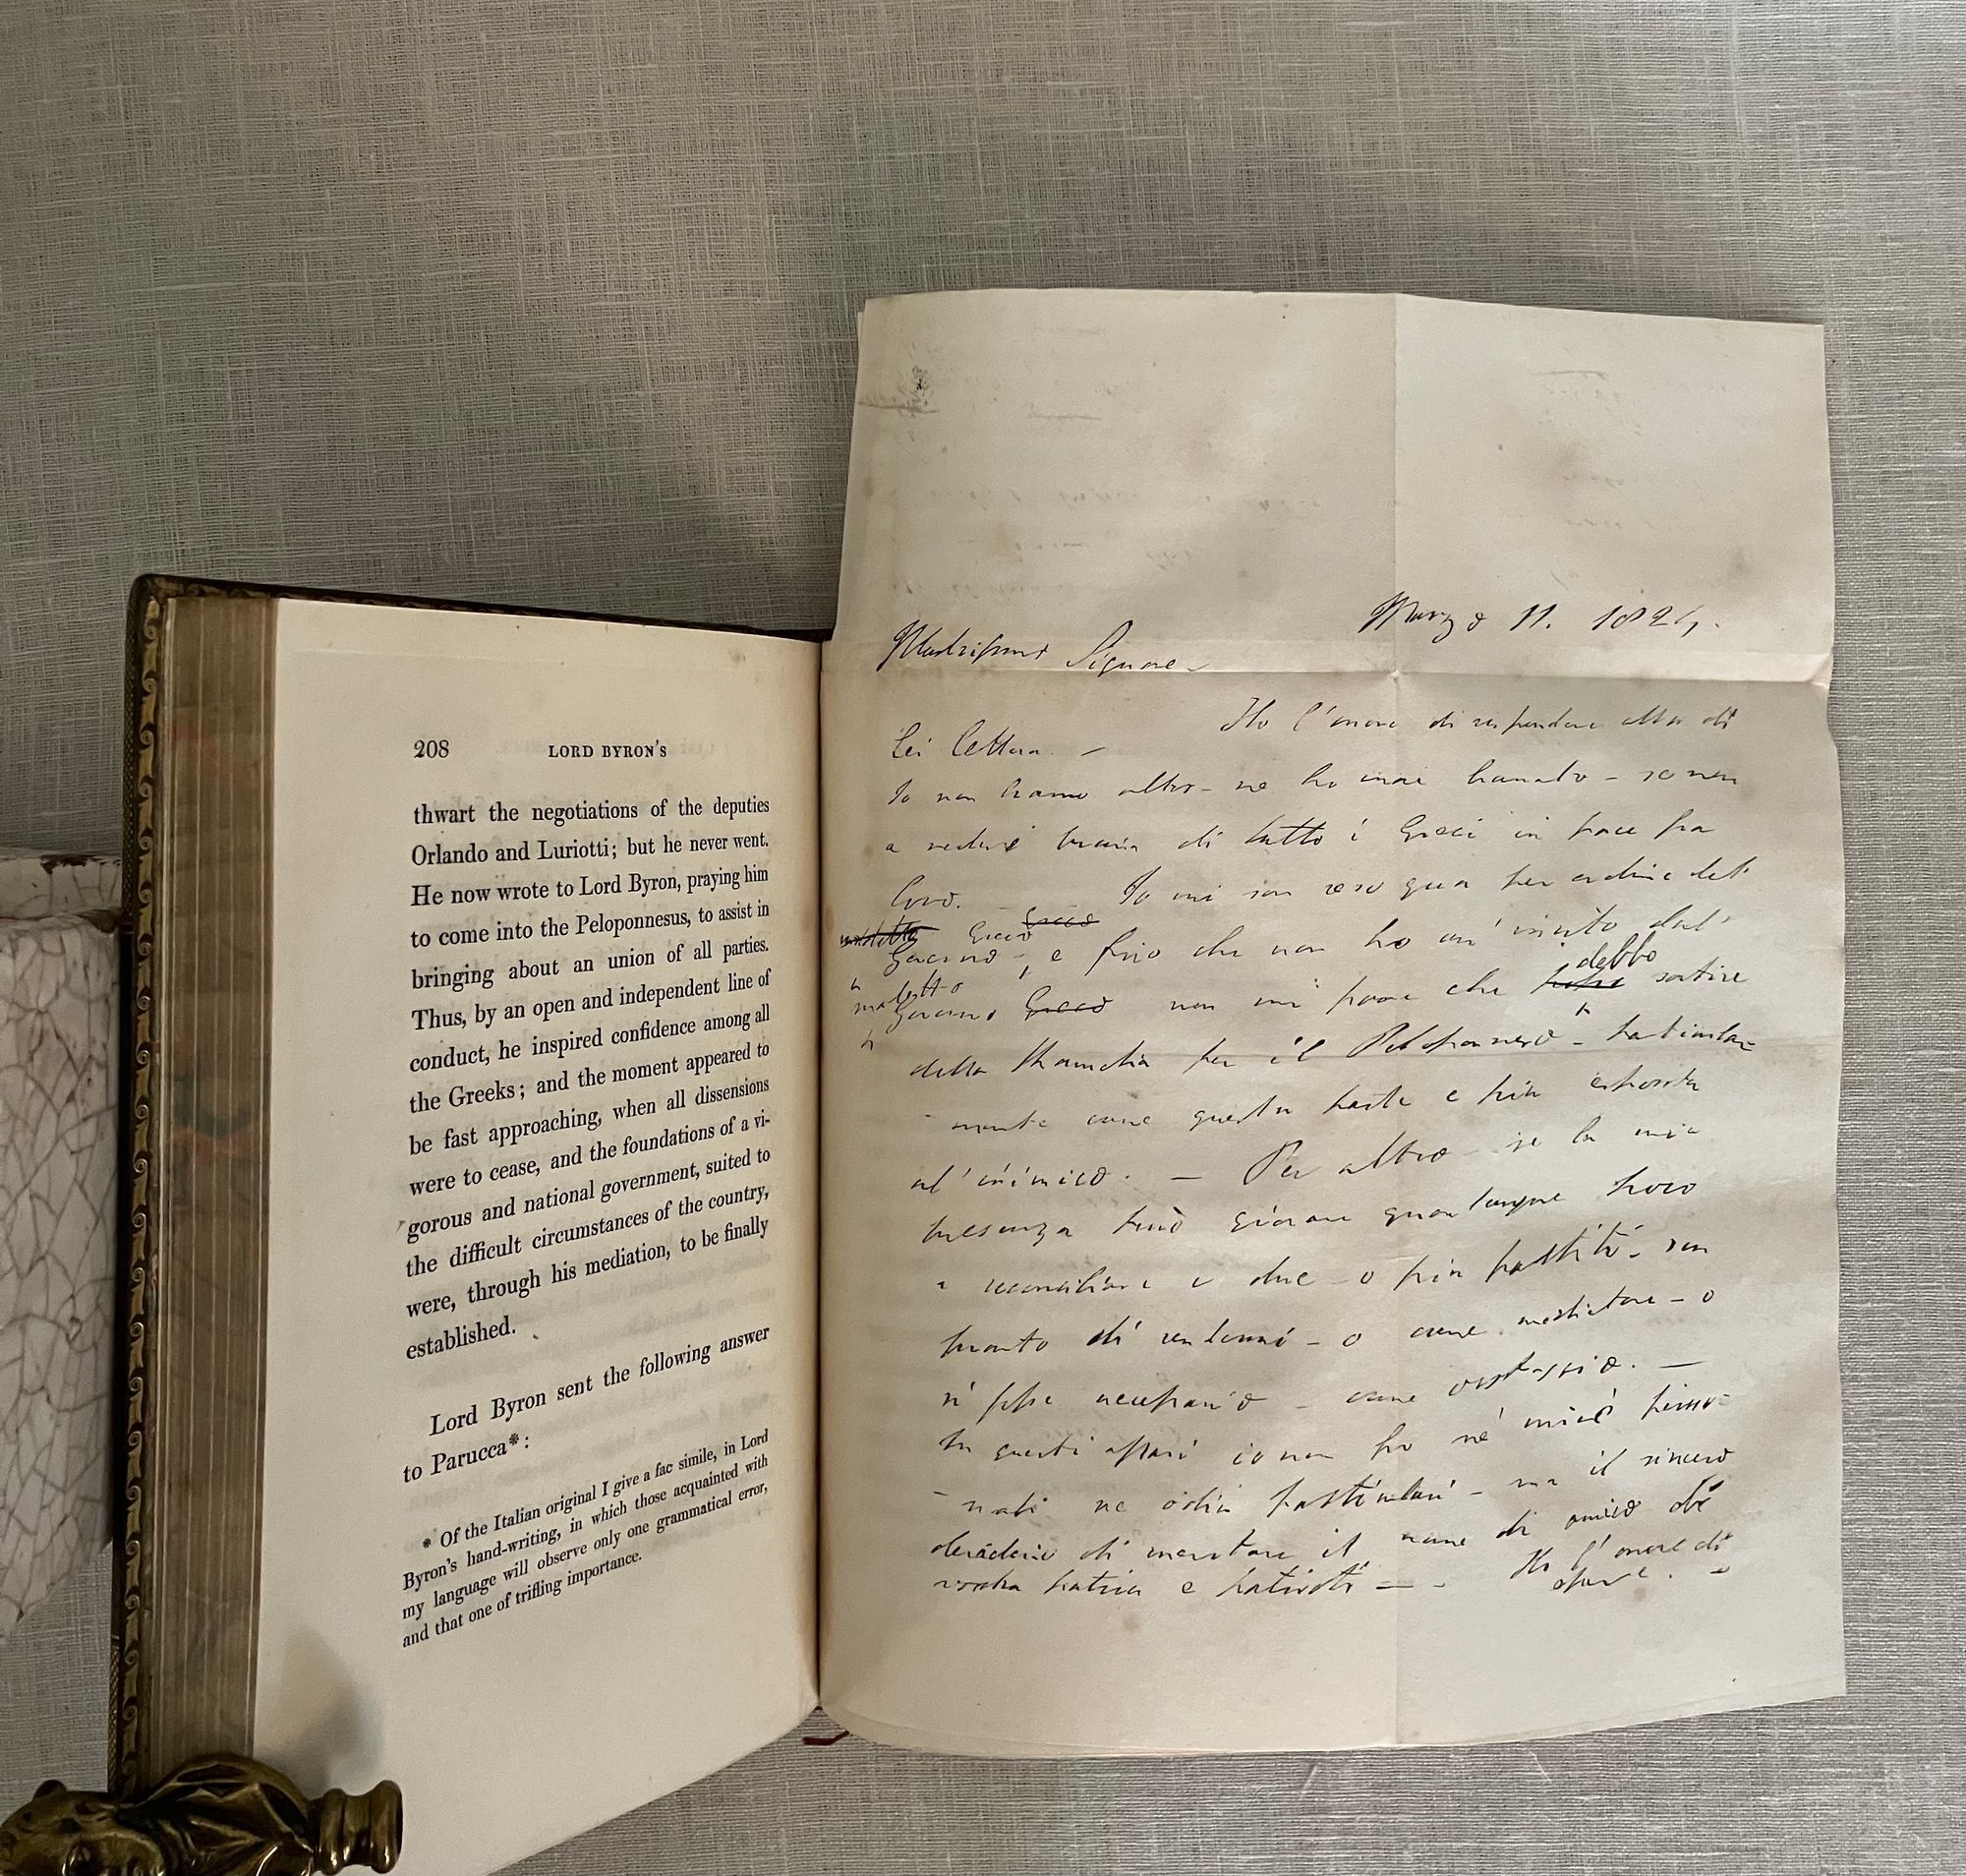 208 LORD BYRON'S
thwart the negotiations of the deputies
Orlando and Luriotti; but he never went.
He now wrote to Lord Byron, praying him
to come into the Peloponnesus, to assist in
bringing about an union of all parties.
Thus, by an open and independent line of
conduct, he inspired confidence among all
the Greeks; and the moment appeared to
be fast approaching, when all dissensions
were to cease, and the foundations of a vi-
gorous and national government, suited to
the difficult circumstances of the country,
were, through his mediation, to be finally
established.
Lord Byron sent the following answer
to Parucca*:
* Of the Italian original I give a fac simile, in Lord
Byron's hand-writing, in which those acquainted with
my language will observe only one grammatical error,
and that one of trifling importance.
Marzo 11. 1824.
Illustrissimo Signore
Ho l'onore di rispondere alla di
Lei lettera. –
Io non bramo altro – ne ho mai bramato – se non
a vedere di tutto i Greci in pace fra
loro. Io mi son reso qua per ordine del
Greco
Governo –, e fino che non ho un' invito dal
debbo
Governo Greco non mi pare che sortire
della per il Peloponneso – particolar
– mente come questa parte e più esposta
al' inimico. – Per altro – se la mia
presenza può giovare qualunque poco
a reconciliare i due – o più partiti – son
pronto di – o come mediatore – o
si fosse necessario – come ostaggio. –
In questi affari io non ho nè miei
ne odii particolari – ma il sincero
desiderio di meritare il nome di amico di
vostra patria e patrioti – – Ho l'onore di